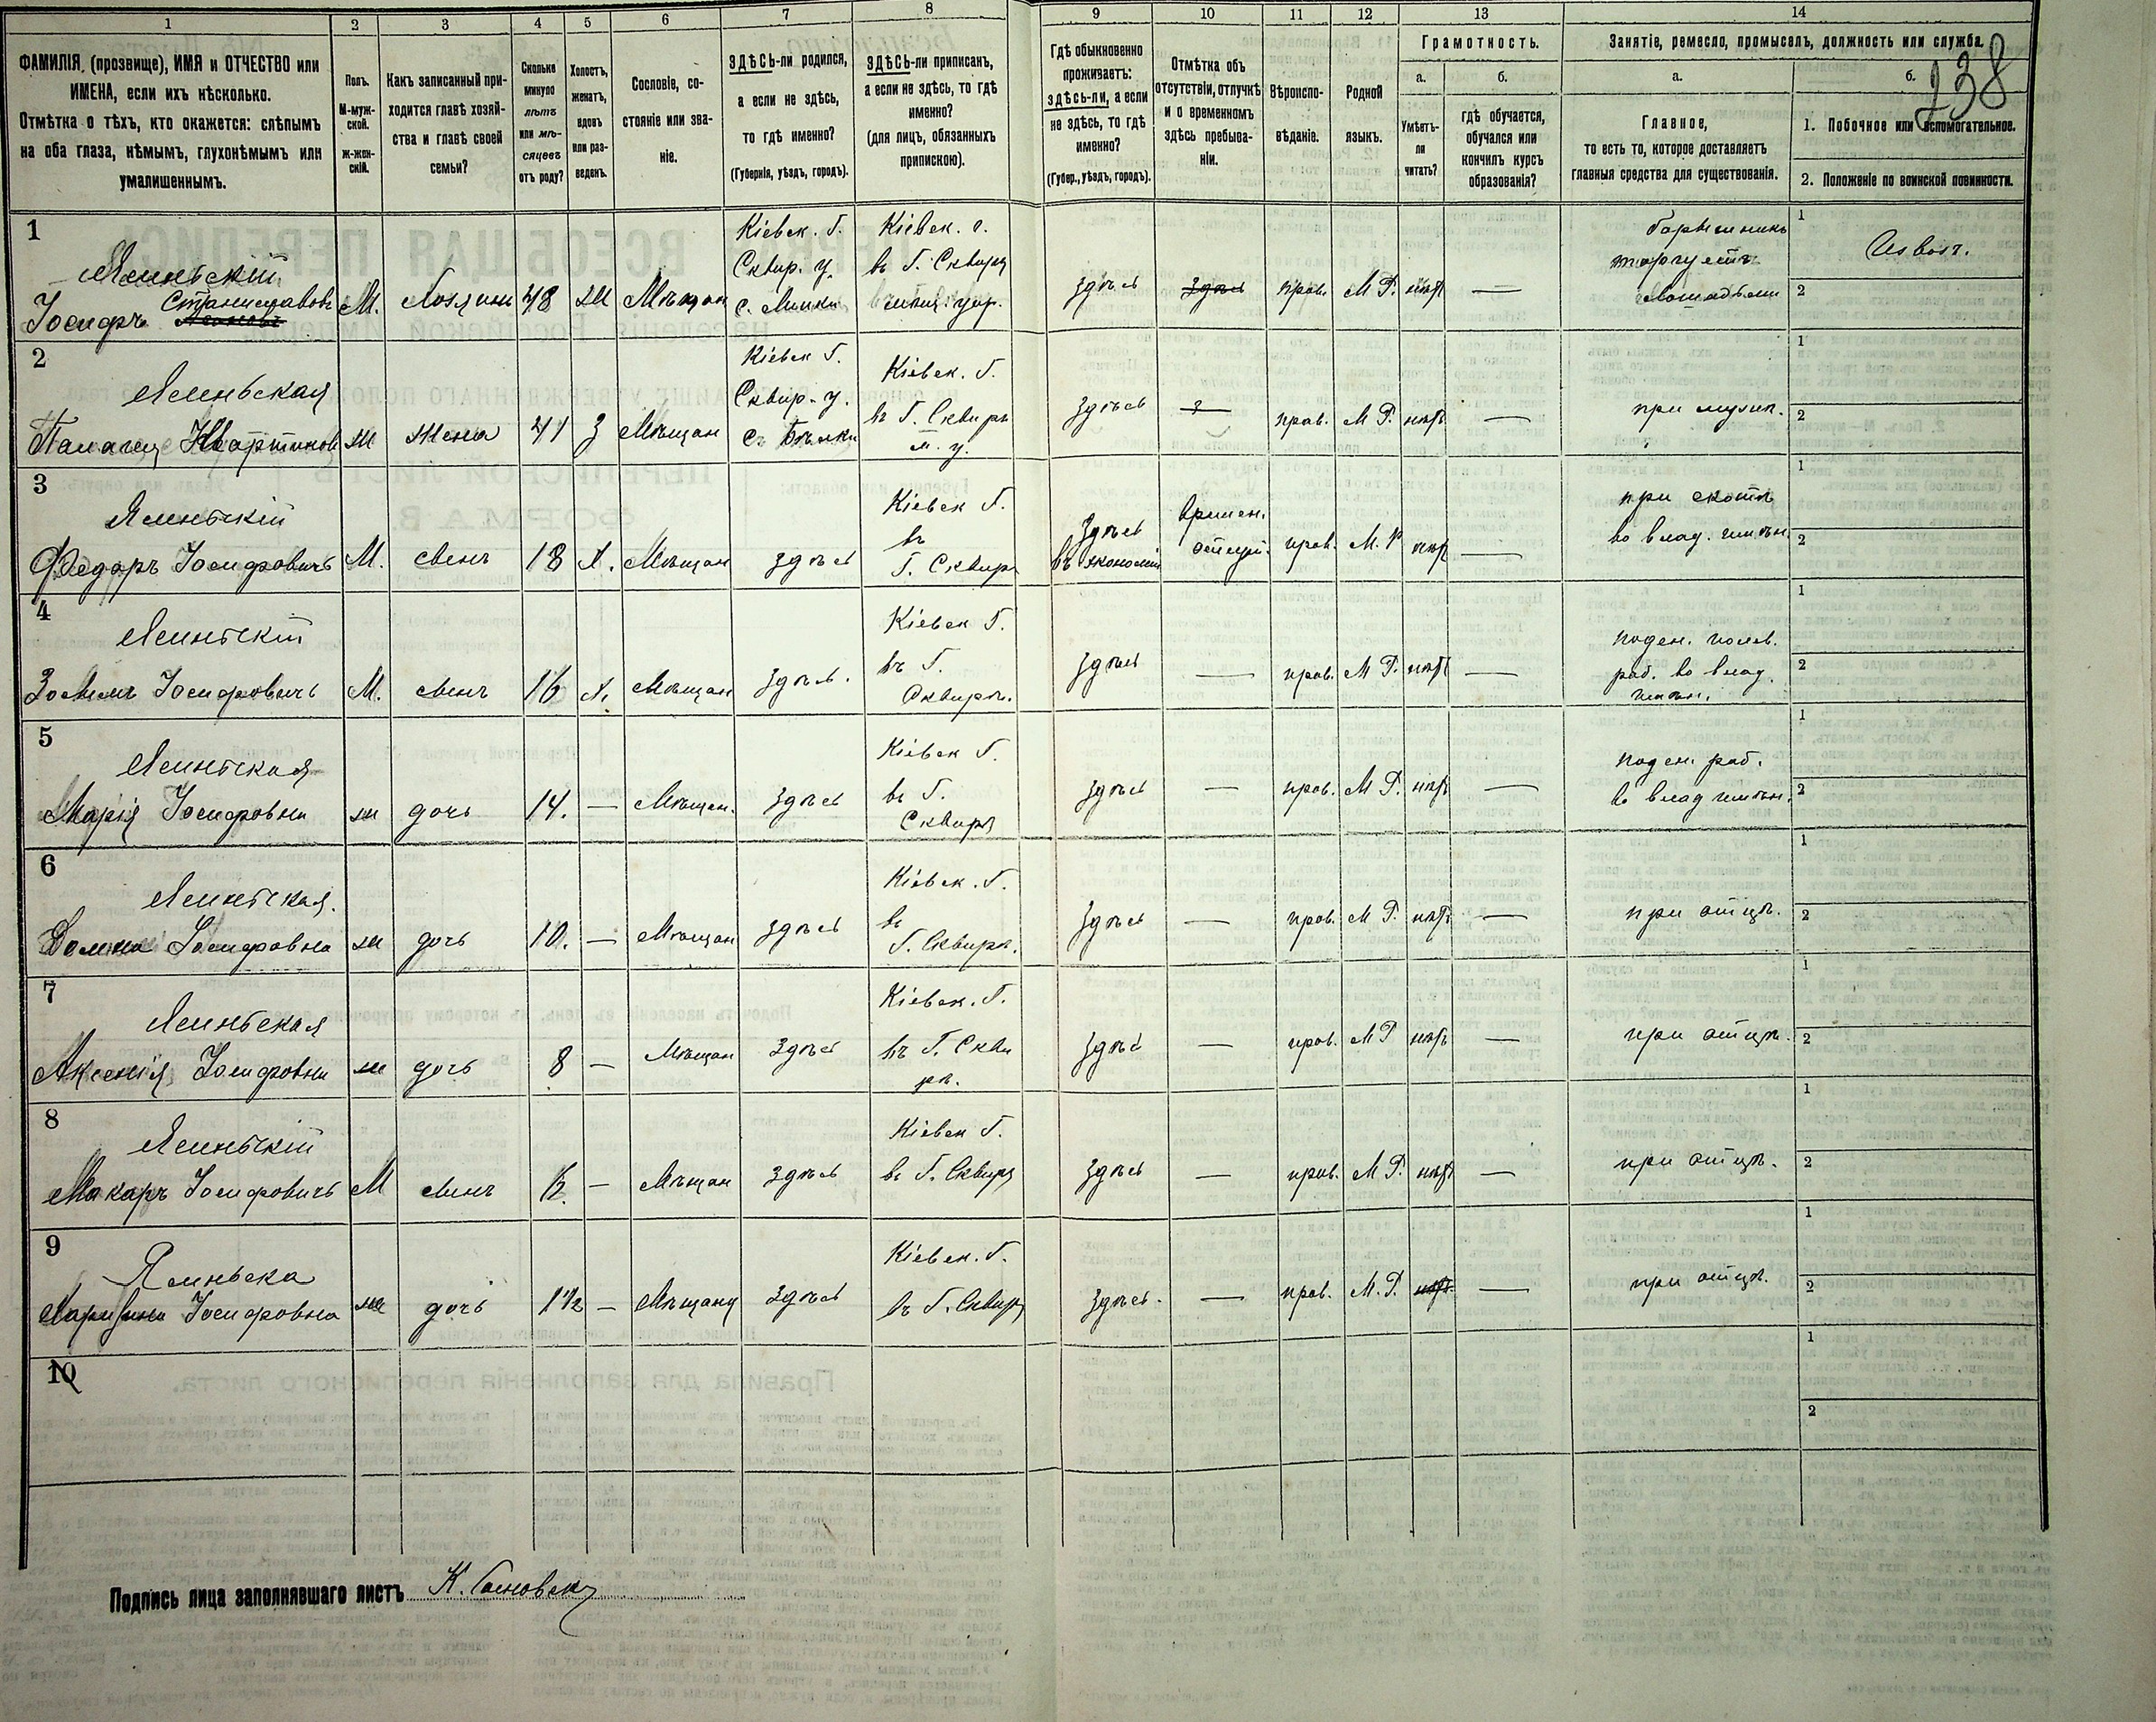 1 2 3 4 5 6 7 8 9 10 11 12 13 14
238
ФАМИЛІЯ, (прозвище), ИМЯ и ОТЧЕСТВО или
ИМЕНА, если ихъ нѣсколько.
Отмѣтка о тѣхъ, кто окажется: слѣпымъ
на оба глаза, нѣмымъ, глухонѣмымъ или
умалишеннымъ.
Полъ.
М-муж-
ской.
ж-жен-
скій.
Какъ записанный при-
ходится главѣ хозяй-
ства и главѣ своей
семьи?
Сколько
минуло
лѣтъ
или мѣ-
сяцевъ
отъ роду?
Холостъ,
женатъ,
вдовъ
или раз-
веденъ.
Сословіе, со-
стояніе или зва-
ніе.
ЗДѢСЬ-ли родился,
а если не здѣсь,
то гдѣ именно?
(Губернія, уѣздъ, городъ).
ЗДѢСЬ-ли приписанъ,
а если не здѣсь, то гдѣ
именно?
(для лицъ, обязанныхъ
припискою).
Гдѣ обыкновенно
проживаетъ:
здѣсь-ли, а если
не здѣсь, то гдѣ
именно?
(Губер., уѣздъ, городъ).
Отмѣтка объ
отсутствіи, отлучкѣ
и о временномъ
здѣсь пребыва-
ніи.
Вѣроиспо-
вѣданіе.
Родной
языкъ.
Грамотность.
а.
Умѣетъ-
ли
читать?
б.
гдѣ обучается,
обучался или
кончилъ курсъ
образованія?
Занятіе, ремесло, промыселъ, должность или служба.
а.
Главное,
то есть то, которое доставляетъ
главныя средства для существованія.
б.
1. Побочное или вспомогательное.
2. Положеніе по воинской повинности.
1
Ясиньскій
Станиславовъ
Іосифъ
М. Хозяинъ 48 ж Мѣщан
Кіевск. Г.
Сквир. у.
Кіевск. г.
въ Г. Сквирѣ
мѣщ. упр.
здѣсь здѣсь прав. М Р. нѣтъ —
барышникъ
торгуетъ
лошадьми
1 Извозч.
2
2
Ясиньская
ж жена 41 З Мѣщан
Кіевск Г.
Сквир. у.
Кіевск. Г.
въ Г. Сквирѣ
м. у.
здѣсь З прав. М Р. нѣтъ —
при мужѣ.
1
2
3
Ясиньскій
Федоръ Іосифовичъ
М. сынъ 18 Х. Мѣщан здѣсь
Кіевск Г.
въ
Г. Сквирѣ
Здѣсь
въ экономіи
времен.
отсут.
прав. М. Р нѣт —
при скотѣ
во влад. имѣн.
1
2
4
Ясиньскій
Іосифовичъ
М. сынъ 16 Х. Мѣщан здѣсь.
Кіевск Г.
въ Г.
Сквирѣ.
здѣсь — прав. М Р. нѣтъ —
поден. полев.
раб. во влад.
имѣн.
1
2
5
Ясиньская
Марія Іосифовна
ж дочь 14. — Мѣщан. здѣсь
Кіевск Г.
въ Г.
Сквирѣ
здѣсь — прав. М Р. нѣтъ —
поден. раб.
во влад имѣн.
1
2
6
Ясиньская.
Домна Іосифовна
ж дочь 10. — Мѣщан здѣсь
Кіевск. Г.
въ
Г. Сквирѣ.
здѣсь — прав. М Р. нѣтъ —
при отцѣ.
1
2
7
Ясиньская
Аксенія Іосифовна
ж дочь 8 — Мѣщан здѣсь
Кіевск. Г.
въ Г. Скви
рѣ.
здѣсь — прав. М Р нѣтъ —
при отцѣ.
1
2
8
Ясиньскій
Макаръ Іосифовичъ
М сынъ — Мѣщан здѣсь
Кіевск Г.
въ Г. Сквирѣ
здѣсь — прав. М Р. нѣтъ —
при отцѣ.
1
2
9
Ясиньска
Іосифовна
ж дочь 1 1/2 — Мѣщан здѣсь
Кіевск. Г.
въ Г. Сквирѣ
здѣсь. — прав. М. Р. нѣтъ —
при отцѣ.
1
2
10
1
2
Подпись лица заполнявшаго листъ